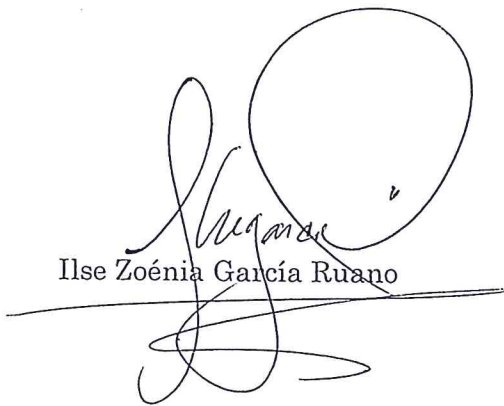 Ilse Zoénia García Ruano